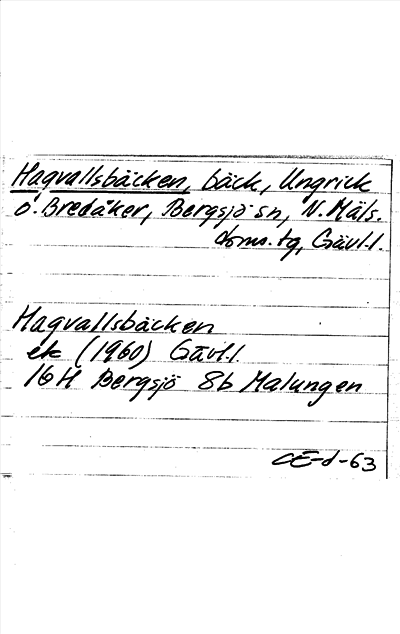 Hagvallsbäcken, bäck, Ungrick
o. Bredåker, Bergsjö sn, N. Häls.
doms. tg, Gävl. l.
Hagvallsbäcken
ek (1960) Gävl. l.
16H Bergsjö 8b Malungen
CE-d-63